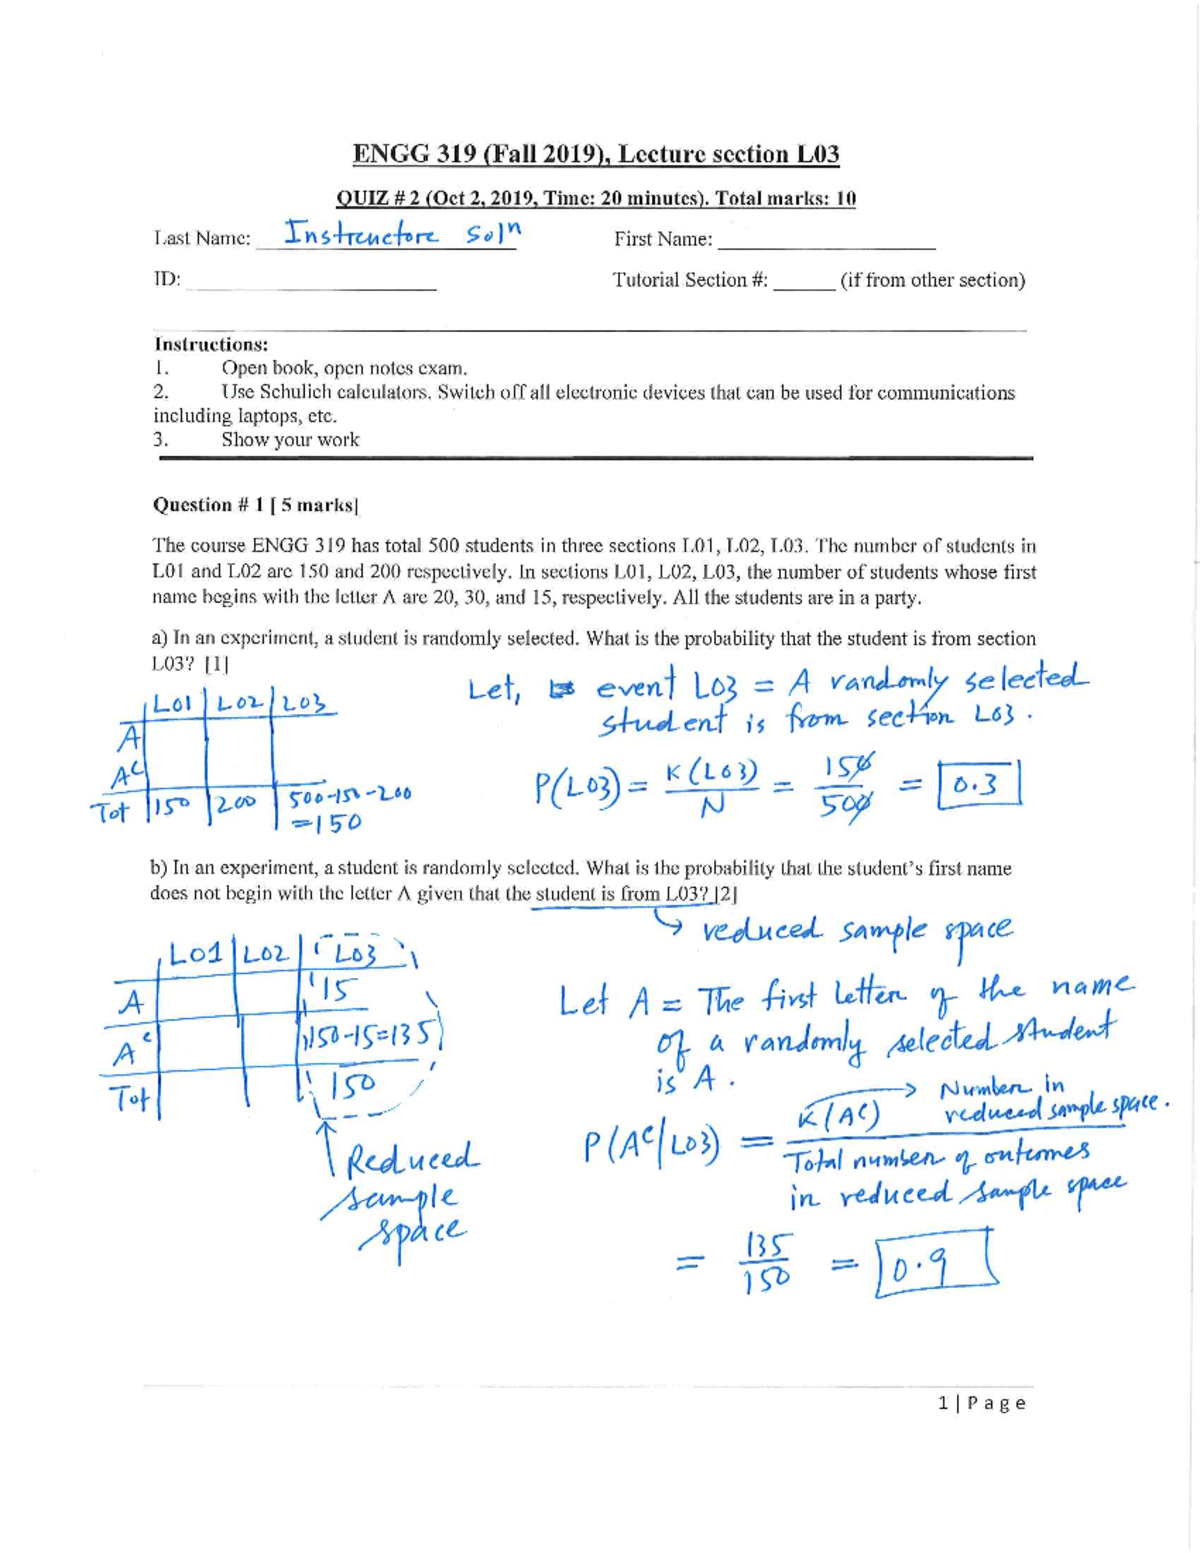 ENGG 319 (Fall 2019), Lecture section L03
QUIZ # 2 (Oct 2, 2019, Time: 20 minutes). Total marks: 10
Last Name: Instructore Solⁿ First Name:
ID: Tutorial Section #: (if from other section)
Instructions:
1. Open book, open notes exam.
2. Use Schulich calculators. Switch off all electronic devices that can be used for communications
including laptops, etc.
3. Show your work
Question # 1 [ 5 marks]
The course ENGG 319 has total 500 students in three sections L01, L02, L03. The number of students in
L01 and L02 are 150 and 200 respectively. In sections L01, L02, L03, the number of students whose first
name begins with the letter A are 20, 30, and 15, respectively. All the students are in a party.
a) In an experiment, a student is randomly selected. What is the probability that the student is from section
L03? [1]
Let, event L03 = A randomly selected
student is from section L03.
L01 L02 L03
A
Aᶜ
Tot 150 200 500-150-200
=150
P(L03) = K(L03)/N = 150/500 = 0.3
b) In an experiment, a student is randomly selected. What is the probability that the student's first name
does not begin with the letter A given that the student is from L03? [2]
→ reduced sample space
L01 L02 L03
A 15
Aᶜ 150-15=135
Tot 150
↑ Reduced
sample
space
Let A = The first letter of the name
of a randomly selected student
is A.
→ Number in
reduced sample space.
P(Aᶜ/L03) = K(Aᶜ)
Total number of outcomes
in reduced sample space
= 135/150 = 0.9
1 | P a g e